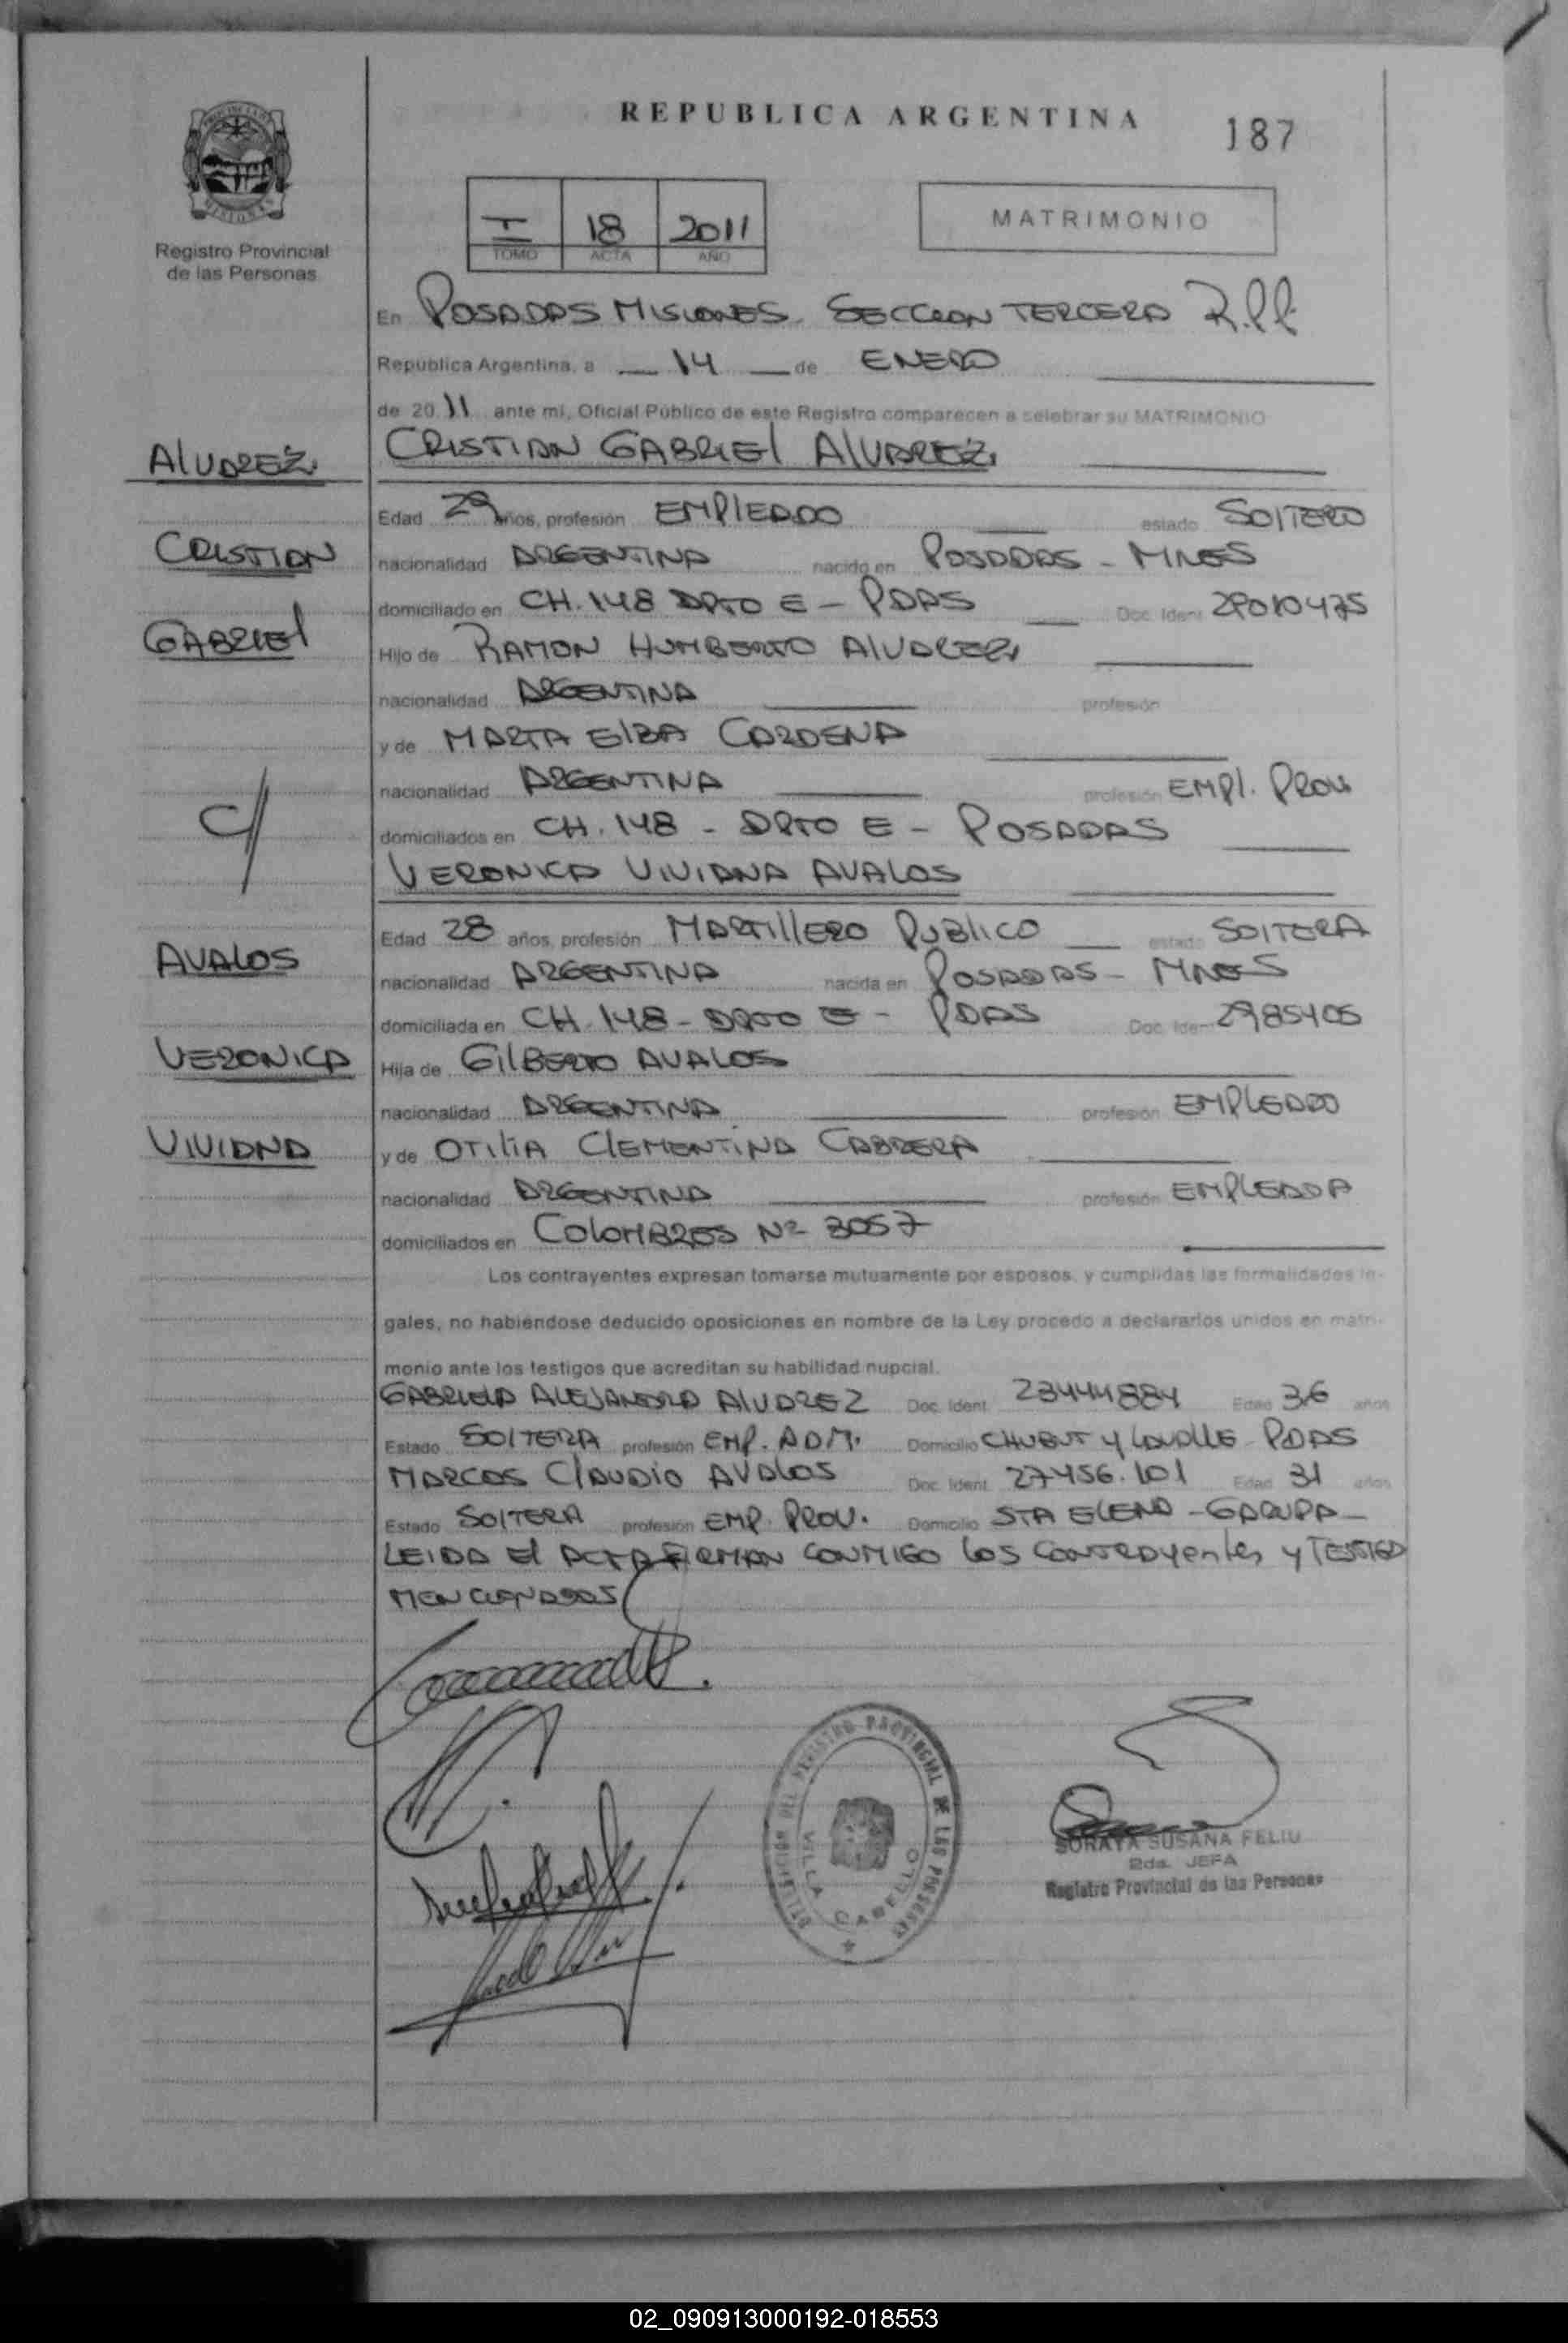 REPUBLICA ARGENTINA
187
Registro Provincial
de las Personas
I 18 2011
TOMO ACTA AÑO
MATRIMONIO
En POSADAS MISIONES. SECCION TERCERA R.P.P.
República Argentina, a 14 de ENERO
de 20 11 ante mí, Oficial Público de este Registro comparecen a celebrar su MATRIMONIO
ALVAREZ
CRISTIAN GABRIEL ALVAREZ
Edad 29 años, profesión EMPLEADO estado SOLTERO
CRISTIAN
nacionalidad ARGENTINA nacido en POSADAS - MNES
domiciliado en CH. 148 DPTO E - PDAS Doc. Ident 29010475
GABRIEL
Hijo de RAMON HUMBERTO ALVAREZ
nacionalidad ARGENTINA profesión
y de MARTA ELBA CARDENA
nacionalidad ARGENTINA profesión EMPL. PROV.
C/
domiciliados en CH. 148 - DPTO E - POSADAS
VERONICA VIVIANA AVALOS
Edad 28 años, profesión MARTILLERO PUBLICO estado SOLTERA
AVALOS
nacionalidad ARGENTINA nacida en POSADAS - MNES
domiciliada en CH. 148 - DPTO E - PDAS Doc. Iden 2985405
VERONICA
Hija de GILBERTO AVALOS
nacionalidad ARGENTINA profesión EMPLEADO
VIVIANA
y de OTILIA CLEMENTINA CABRERA
nacionalidad ARGENTINA profesión EMPLEADA
domiciliados en COLOMBRES Nº 3057
Los contrayentes expresan tomarse mutuamente por esposos, y cumplidas las formalidades le-
gales, no habiéndose deducido oposiciones en nombre de la Ley procedo a declararlos unidos en matri-
monio ante los testigos que acreditan su habilidad nupcial.
GABRIELA ALEJANDRA ALVAREZ Doc. Ident. 23444884 Edad 36 años
Estado SOLTERA profesión EMP. ADM. Domicilio CHUBUT Y LAVALLE - PDAS
MARCOS CLAUDIO AVALOS Doc. Ident. 27456.101 Edad 31 años
Estado SOLTERA profesión EMP. PROV. Domicilio STA ELENA - GARUPA -
LEIDA El ACTA FIRMAN CONMIGO LOS CONTRAYENTES Y TESTIGO
MENCIONADOS
DEL REGISTRO PROVINCIAL DE LAS PERSONAS
VILLA CABELLO
SORAYA SUSANA FELIU
2da. JEFA
Registro Provincial de las Personas
02_090913000192-018553